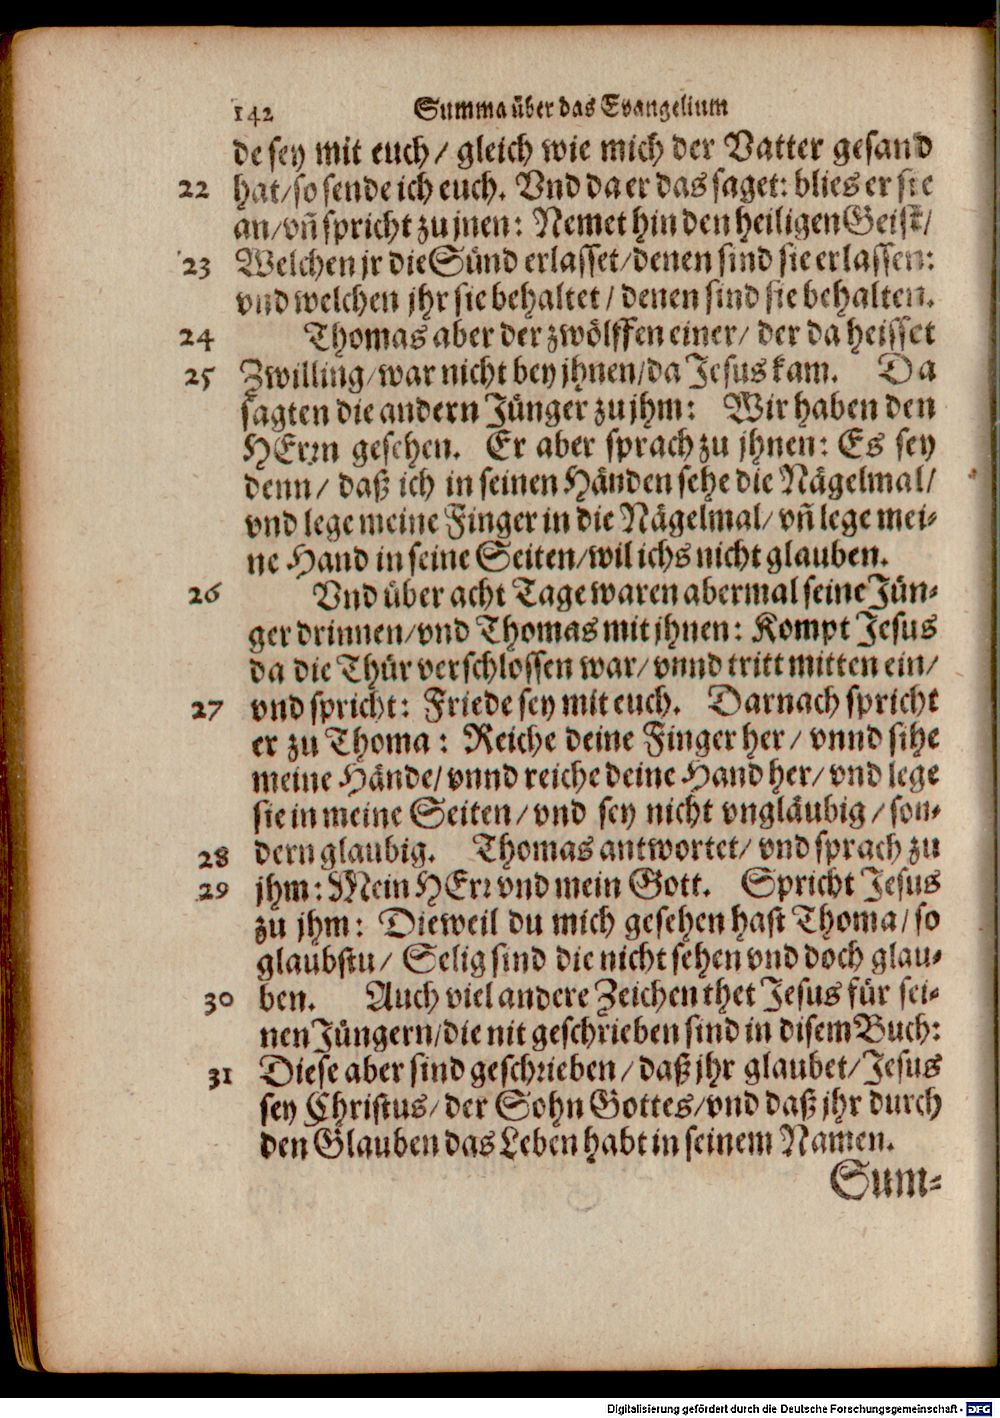 142 Summa über das Evangelium
de sey mit euch / gleich wie mich der Vatter gesand
22 hat / so sende ich euch. Vnd da er das saget: blies er sie
an / vñ spricht zu jnen: Nemet hin den heiligen Geist /
23 Welchen jr die Sünd erlasset / denen sind sie erlassen:
vnd welchen jhr sie behaltet / denen sind sie behalten.
24 Thomas aber der zwölffen einer / der da heisset
25 Zwilling / war nicht bey jhnen / da Jesus kam. Da
sagten die andern Jünger zu jhm: Wir haben den
HErrn gesehen. Er aber sprach zu jhnen: Es sey
denn / daß ich in seinen Händen sehe die Nägelmal /
vnd lege meine Finger in die Nägelmal / vñ lege mei-
ne Hand in seine Seiten / wil ichs nicht glauben.
26 Vnd über acht Tage waren abermal seine Jün-
ger drinnen / vnd Thomas mit jhnen: Kompt Jesus
da die Thür verschlossen war / vnnd tritt mitten ein /
27 vnd spricht: Friede sey mit euch. Darnach spricht
er zu Thoma: Reiche deine Finger her / vnnd sihe
meine Hände / vnnd reiche deine Hand her / vnd lege
sie in meine Seiten / vnd sey nicht vngläubig / son-
28 dern glaubig. Thomas antwortet / vnd sprach zu
29 jhm: Mein HErr vnd mein Gott. Spricht Jesus
zu jhm: Dieweil du mich gesehen hast Thoma / so
glaubstu / Selig sind die nicht sehen vnd doch glau-
30 ben. Auch viel andere Zeichen thet Jesus für sei-
nen Jüngern / die nit geschrieben sind in disem Buch:
31 Diese aber sind geschrieben / daß jhr glaubet / Jesus
sey Christus / der Sohn Gottes / vnd daß jhr durch
den Glauben das Leben habt in seinem Namen.
Sum-
Digitalisierung gefördert durch die Deutsche Forschungsgemeinschaft - DFG